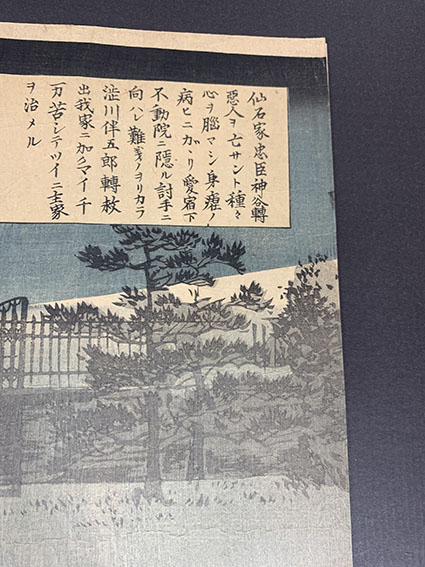 仙石家忠臣神谷轉
惡人ヲ亡サント種々
心ヲ腦マシ身瘧ノ
病ヒニカヽリ愛宿下
不動院ニ隱ル討手ニ
向ヘシ難義ノヲリカラ
澁川伴五郎轉救
出我家ニ加クマイ千
万苦シテツイニ主家
ヲ治メル